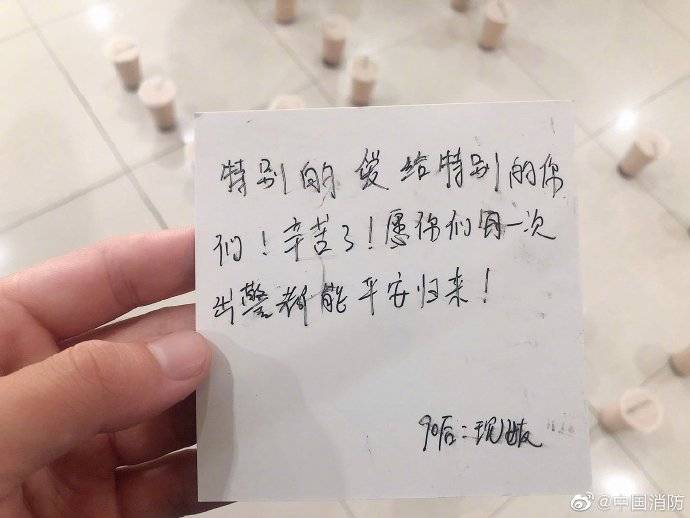 特别的爱给特别的你
们！辛苦了！愿你们每一次
出警都能平安归来！
90后：
@中国消防